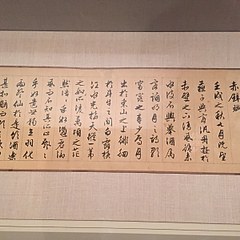 赤壁賦
壬戌之秋七月既望
蘇子與客汎舟遊於
赤壁之下清風徐來
水波不興舉酒屬
客誦明月之詩歌
窈窕之章少焉月
出於東山之上徘徊
於斗牛之間白露橫
江水光接天縱一葦
之所如凌萬頃之茫
然浩浩乎如憑虛御
風而不知其所止飄
乎如遺世獨立羽化
而登仙於是飲酒樂
甚扣舷而歌